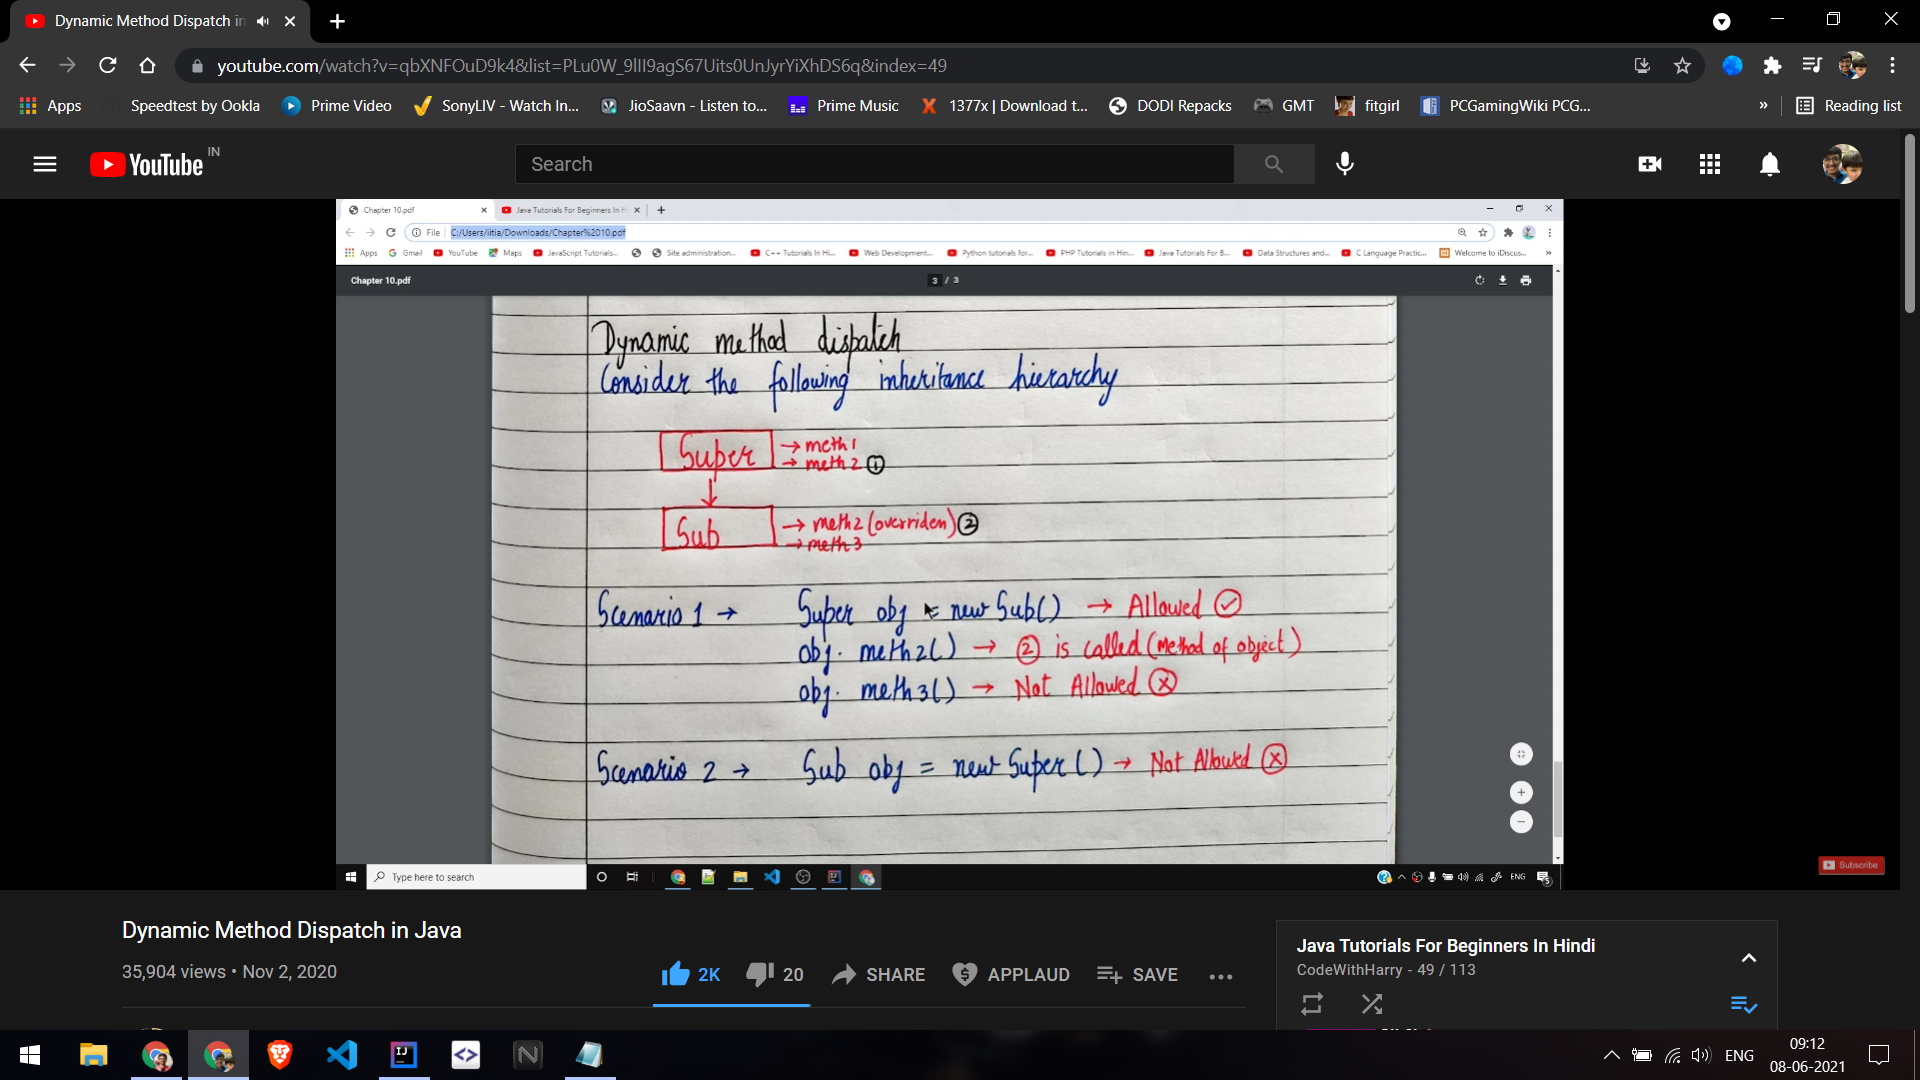 Dynamic Method Dispatch in
youtube.com/watch?v=qbXNFOuD9k4&list=PLu0W_9lII9agS67Uits0UnJyrYiXhDS6q&index=49
Apps Speedtest by Ookla Prime Video SonyLIV - Watch In... JioSaavn - Listen to... Prime Music 1377x | Download t... DODI Repacks GMT fitgirl PCGamingWiki PCG... » Reading list
YouTube IN Search
Chapter 10.pdf Java Tutorials For Beginners In H
File C:/Users/iitia/Downloads/Chapter%2010.pdf
Apps Gmail YouTube Maps JavaScript Tutorials... Site administration... C++ Tutorials In Hi... Web Development... Python tutorials for... PHP Tutorials in Hin... Java Tutorials For B... Data Structures and... C Language Practic... Welcome to iDiscus... »
Chapter 10.pdf 3 / 3
Dynamic method dispatch
Consider the following inheritance hierarchy
Super → meth1
→ meth2 ①
Sub → meth2 (overriden) ②
→ meth3
Scenario 1 → Super obj = new Sub() → Allowed
obj. meth2() → ② is called (Method of object)
obj. meth3() → Not Allowed
Scenario 2 → Sub obj = new Super() → Not Allowed
Subscribe
Type here to search ENG 5
Dynamic Method Dispatch in Java
35,904 views • Nov 2, 2020
2K 20 SHARE APPLAUD SAVE
Java Tutorials For Beginners In Hindi
CodeWithHarry - 49 / 113
ENG 09:12
08-06-2021